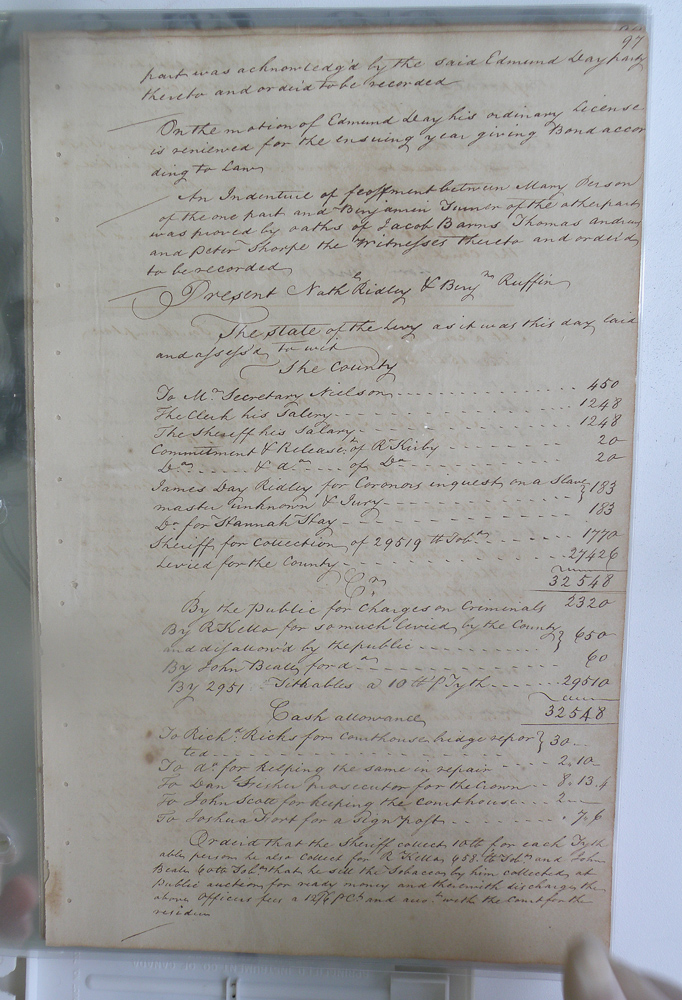 97
part was acknowledg'd by the said Edmund Day party
thereto and ordeid to be recorded
On the motion of Edmund Day his ordinary License
is reniewed for the ensuing year giving Bond accor
ding to Law
An Indenture of feoffment between Mary Person
of the one part and Benjamin Turner of the other part
was proved by oaths of Jacob Barns Thomas Andrews
and Peter Thorpe the Witnesses thereto and ordeid
to be recorded
Present Nath.l Ridley & Benj.mn Ruffin
The state of the Levy as it was this day laid
and assess'd to wit
The County
To Mr. Secretary Nielson 450
The Clerk his Salery 1248
The Sheriff his Salary 1248
Commitment & Release of R Kirby 20
Do & do of Do 20
James Day Ridley for Coroners inquest on a Slave } 183
master unknown & Jury
Do for Hannah 183
Sheriff for Collection of 29519 tt Tobo 1770
Levied for the County 27426
32548
Cr
By the public for Charges on Criminals 2320
By R Kello for so much levied by the County } 650
and disallow'd by the public
By John Beale for do 60
By 2951 Tithables a 10 tt P Tyth 29510
32548
Cash allowance
To Richd. Ricks for Courthouse bridge repor } 30
ted
To do for keeping the same in repair 2.10
To Danl Fisher prosecutor for the Crown 8.13.4
To John Scott for keeping the Courthouse 2
To Joshua for a sign post .7.6
Ordeid that the Sheriff collect 10 tt for each Tyth
able person he also collect for R Kello 658 tt Tobo and John
Beale 60 tt Tobo that he sell the Tobaccoes by him collected at
Public auction for ready money and therewith discharge the
above Officers fees a 12/6 P Ct and acco. with the Court for the
residue